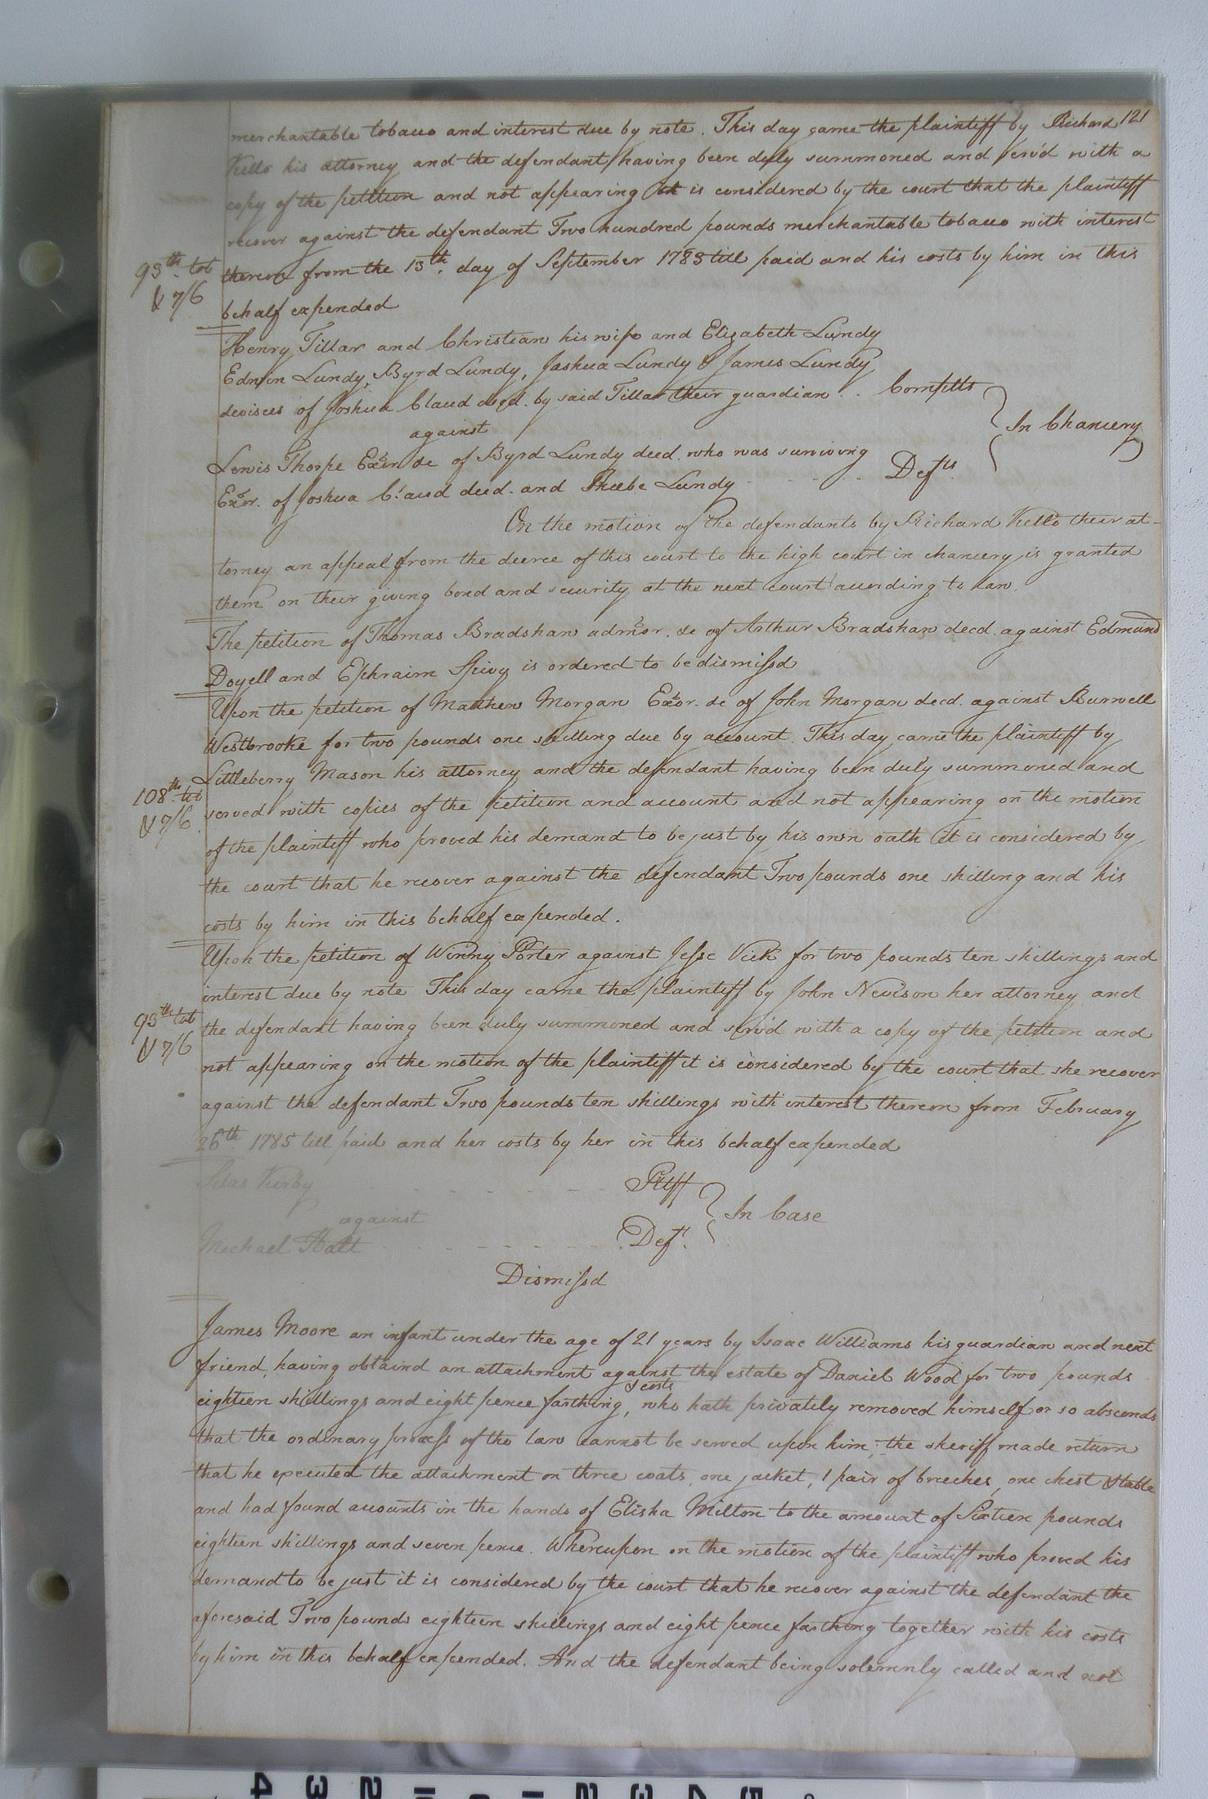 121
merchantable tobacco and interest due by note. This day came the plaintiff by Richard
Kello his attorney and the defendant having been duly summoned and serv'd with a
copy of the petition and not appearing it is considered by the court that the plaintiff
recover against the defendant Two hundred pounds merchantable tobacco with interest
93th tob thereon from the 15th. day of September 1783 till paid and his costs by him in this
& 7/6 behalf expended
Henry Tillar and Christian his wife and Elizabeth Lundy
Edwin Lundy, Byrd Lundy, Joshua Lundy & James Lundy
devisees of Joshua Claud decd. by said Tillar their guardian .. Complts
In Chancery
against
Lewis Thorpe Exōr &c of Byrd Lundy decd. who was surviving
Exōr. of Joshua Claud decd. and Phœbe Lundy Defts
On the motion of the defendants by Richard Kello their at-
torney an appeal from the decree of this court to the high court in chancery is granted
them on their giving bond and security at the next court according to law.
The petition of Thomas Bradshaw admōr. &c of Arthur Bradshaw decd. against Edmund
Doyell and Ephraim Spivy is ordered to be dismissd
Upon the petition of Matthew Morgan Exōr. &c of John Morgan decd. against Burwell
Westbrooke for two pounds one shilling due by account. This day came the plaintiff by
Littleberry Mason his attorney and the defendant having been duly summoned and
108th tob served with copies of the petition and account and not appearing on the motion
& 7/6. of the plaintiff who proved his demand to be just by his own oath it is considered by
the court that he recover against the defendant Two pounds one shilling and his
costs by him in this behalf expended.
Upon the petition of Winny Porter against Jesse Vick for two pounds ten shillings and
interest due by note This day came the plaintiff by John Nevison her attorney and
93th tob the defendant having been duly summoned and serv'd with a copy of the petition and
& 7/6 not appearing on the motion of the plaintiff it is considered by the court that she recover
against the defendant Two pounds ten shillings with interest thereon from February
26th 1785 till paid and her costs by her in this behalf expended
Silas Kirby Pltff
against In Case
Michael Hall Deft.
Dismissd
James Moore an infant under the age of 21 years by Isaac Williams his guardian and next
friend, having obtaind an attachment against the estate of Daniel Wood for two pounds
eighteen shillings and eight pence farthing, & costs who hath privately removed himself or so absconds
that the ordinary process of the law cannot be served upon him; the sheriff made return
that he executed the attachment on three coats, one jacket, 1 pair of breeches, one chest & table
and had found accounts in the hands of Elisha Milton to the amount of Sixteen pounds
eighteen shillings and seven pence. Whereupon on the motion of the plaintiff who proved his
demand to be just it is considered by the court that he recover against the defendant the
aforesaid Two pounds eighteen shillings and eight pence farthing together with his costs
by him in this behalf expended. And the defendant being solemnly called and not
4 3 2 1 0 1 2 3 4 5